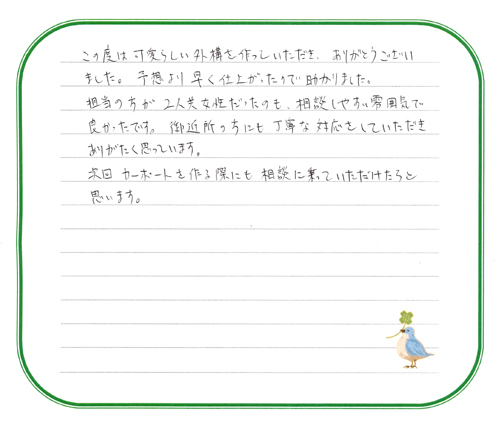 この度は可愛らしい外構を作っていただき、ありがとうござい
ました。予想より早く仕上がったので助かりました。
担当の方が2人共女性だったのも、相談しやすい雰囲気で
良かったです。御近所の方にも丁寧な対応をしていただき
ありがたく思っています。
次回カーポートを作る際にも相談に乗っていただけたらと
思います。